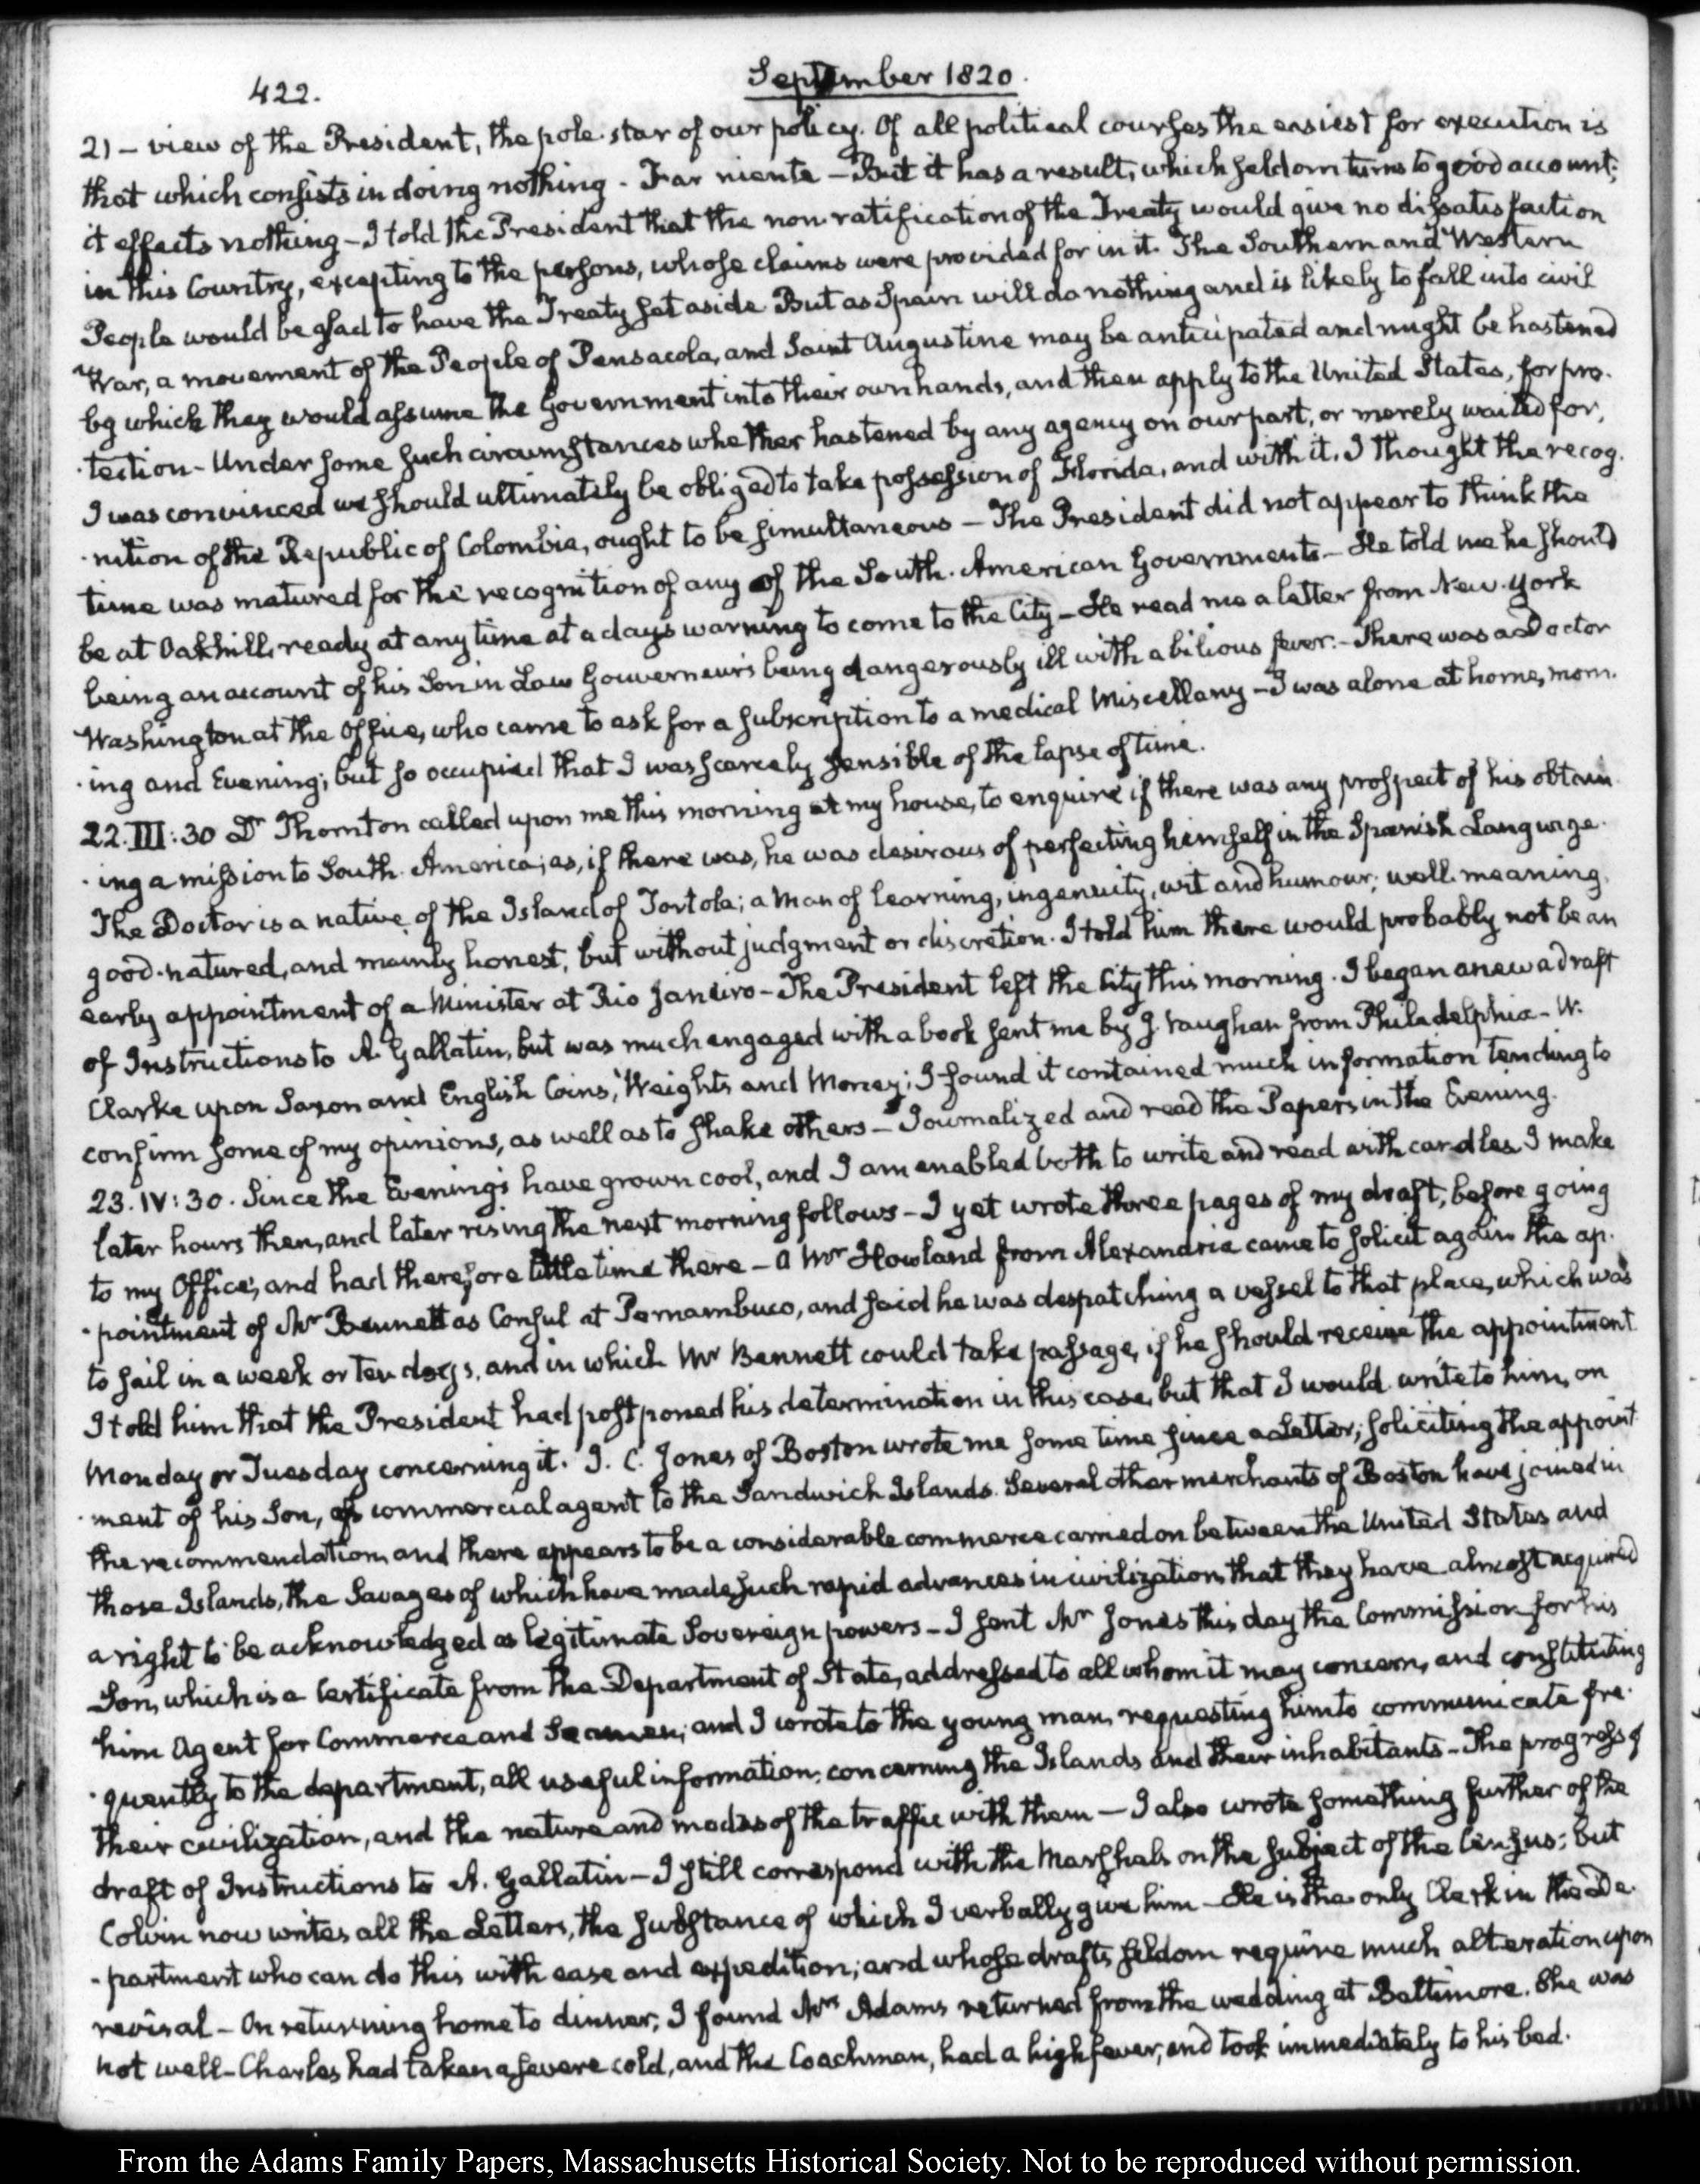 422.
September 1820.
21 – view of the President, the pole-star of our policy. Of all political courses the easiest for execution is
that which consists in doing nothing. Far niente – But it has a result, which seldom turns to good account;
it effects nothing – I told the President that the non ratification of the Treaty would give no dissatisfaction
in this Country, excepting to the persons, whose claims were provided for in it. The Southern and Western
People would be glad to have the Treaty set aside. But as Spain will do nothing and is likely to fall into civil
War, a movement of the People of Pensacola, and Saint Augustine may be anticipated and might be hastened
by which they would assume the Government into their own hands, and then apply to the United States, for pro-
-tection – Under some such circumstances whether hastened by any agency on our part, or merely waited for,
I was convinced we should ultimately be obliged to take possession of Florida, and with it, I thought the recog-
-nition of the Republic of Colombia, ought to be simultaneous – The President did not appear to think the
time was matured for the recognition of any of the South-American Governments – He told me he should
be at Oakhill, ready at any time at a days warning to come to the City – He read me a letter from New-York
being an account of his Son in Law Gouverneur's being dangerously ill with a bilious fever. – There was a Doctor
Washington at the Office, who came to ask for a subscription to a medical Miscellany – I was alone at home, morn-
-ing and Evening; but so occupied that I was scarcely sensible of the lapse of time.
22. III:30 Dr Thornton called upon me this morning at my house, to enquire if there was any prospect of his obtain-
-ing a mission to South-America; as, if there was, he was desirous of perfecting himself in the Spanish Language.
The Doctor is a native of the Island of Tortola; a man of learning, ingenuity, wit and humour; well-meaning,
good-natured, and mainly honest, but without judgment or discretion. I told him there would probably not be an
early appointment of a Minister at Rio Janeiro – The President left the City this morning. I began anew a draft
of Instructions to A. Gallatin, but was much engaged with a book sent me by J. Vaughan from Philadelphia – W.
Clarke upon Saxon and English Coins, Weights and Money; I found it contained much information tending to
confirm some of my opinions, as well as to shake others – Journalized and read the Papers in the Evening.
23. IV:30. Since the Evenings have grown cool, and I am enabled both to write and read with candles I make
later hours then, and later rising the next morning follows – I yet wrote three pages of my draft, before going
to my Office, and had therefore little time there – A Mr Howland from Alexandria came to solicit again the ap-
-pointment of Mr Bennett as Consul at Pernambuco, and said he was despatching a vessel to that place, which was
to sail in a week or ten days, and in which Mr Bennett could take passage, if he should receive the appointment.
I told him that the President had postponed his determination in this case, but that I would write to him, on
Monday or Tuesday concerning it. J. C. Jones of Boston wrote me some time since a Letter, soliciting the appoint-
-ment of his Son, as commercial agent to the Sandwich Islands. Several other merchants of Boston have joined in
the recommendation, and there appears to be a considerable commerce carried on between the United States and
those Islands, the Savages of which have made such rapid advances in civilization that they have almost acquired
a right to be acknowledged as legitimate Sovereign powers – I sent Mr Jones this day the Commission for his
Son, which is a Certificate from the Department of State, addressed to all whom it may concern, and constituting
him Agent for Commerce and Seamen; and I wrote to the young man, requesting him to communicate fre-
-quently to the department, all useful information, concerning the Islands and their inhabitants – The progress of
their civilization, and the nature and modes of the traffic with them – I also wrote something further of the
draft of Instructions to A. Gallatin – I still correspond with the Marshals on the subject of the Census; but
Colvin now writes all the Letters, the substance of which I verbally give him – He is the only Clerk in the De-
-partment who can do this with ease and expedition; and whose drafts seldom require much alteration upon
revisal – On returning home to dinner, I found Mrs Adams returned from the wedding at Baltimore. She was
not well – Charles had taken a severe cold, and the Coachman, had a high fever, and took immediately to his bed.
From the Adams Family Papers, Massachusetts Historical Society. Not to be reproduced without permission.